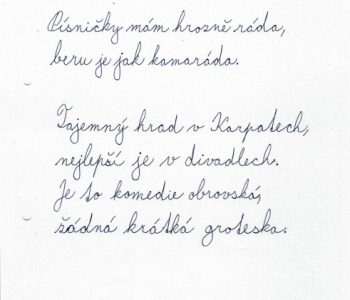 Písničky mám hrozně ráda,
beru je jak kamaráda.
Tajemný hrad v Karpatech,
nejlepší je v divadlech.
Je to komedie obrovská,
žádná krátká groteska.